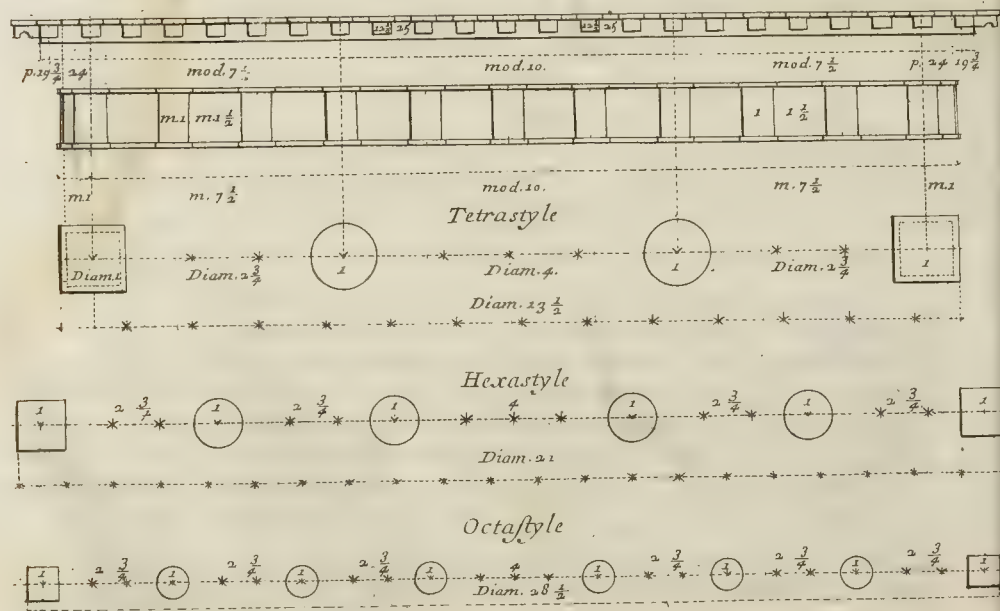 12½ 25 12½ 25
p. 19¾ 24 mod. 7½ mod. 10. mod. 7½ p. 24 19¾
m.1 m.1½ 1 1½
m.1 m. 7½ mod. 10. m. 7½ m.1
Tetrastyle
Diam.1 Diam. 2¾ 1 Diam. 4. 1 Diam. 2¾ 1
Diam. 13½
Hexastyle
1 2¾ 1 2¾ 1 4 1 2¾ 1 2¾ 1
Diam. 21
Octaſtyle
1 2¾ 1 2¾ 1 2¾ 1 4 1 2¾ 1 2¾ 1 2¾ 1
Diam. 28½